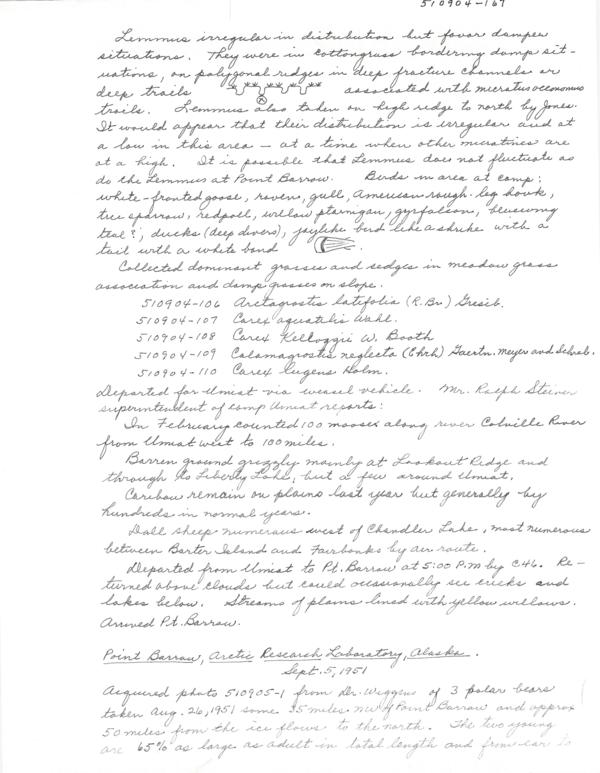 510904-167
Lemmus irregular in distribution but favor damper
situations. They were in cottongrass bordering damp sit-
uations, on polygonal ridges in deep fracture channels or
deep trails associated with microtus oeconomus
trails. Lemmus also taken on high ridge to north by Jones.
It would appear that their distribution is irregular and at
a low in this area – at a time when other microtines are
at a high. It is possible that Lemmus does not fluctuate as
do the Lemmus at Point Barrow. Birds in area at camp:
white-fronted goose, raven, gull, American rough-leg hawk,
tree sparrow, redpoll, willow ptarmigan, gyrfalcon, bluewing
teal?, ducks (deep divers), jaylike bird like a shrike with a
tail with a white band .
Collected dominant grasses and sedges in meadow grass
association and damp grasses on slope.
510904-106 Arctagrostis latifolia (R. Br.) Griseb.
510904-107 Carex aquatilis Wahl.
510904-108 Carex Kelloggii W. Booth
510904-109 Calamagrostis neglecta (Ehrh) Gaertn. Meyer and Schreb.
510904-110 Carex lugens Holm.
Departed for Umiat via weasel vehicle. Mr. Ralph Steiner
superintendent of camp Umiat reports:
In February counted 100 moose along river Colville River
from Umiat west to 100 miles.
Barren ground grizzly mainly at Lookout Ridge and
through to Liberty Lake, but a few around Umiat.
Caribou remain on plains last year but generally by
hundreds in normal years.
Dall sheep numerous west of Chandler Lake, most numerous
between Barter Island and Fairbanks by air route.
Departed from Umiat to Pt. Barrow at 5:00 P.M by C46. Re-
turned above clouds but could occasionally see cricks and
lakes below. Streams of plains lined with yellow willows.
Arrived Pt. Barrow.
Point Barrow, Arctic Research Laboratory, Alaska.
Sept. 5, 1951
Acquired photo 510905-1 from Dr. Wiggins of 3 polar bears
taken Aug. 26, 1951 some 35 miles NW of Point Barrow and approx
50 miles from the ice flows to the north. The two young
are 65% as large as adult in total length and from ear to